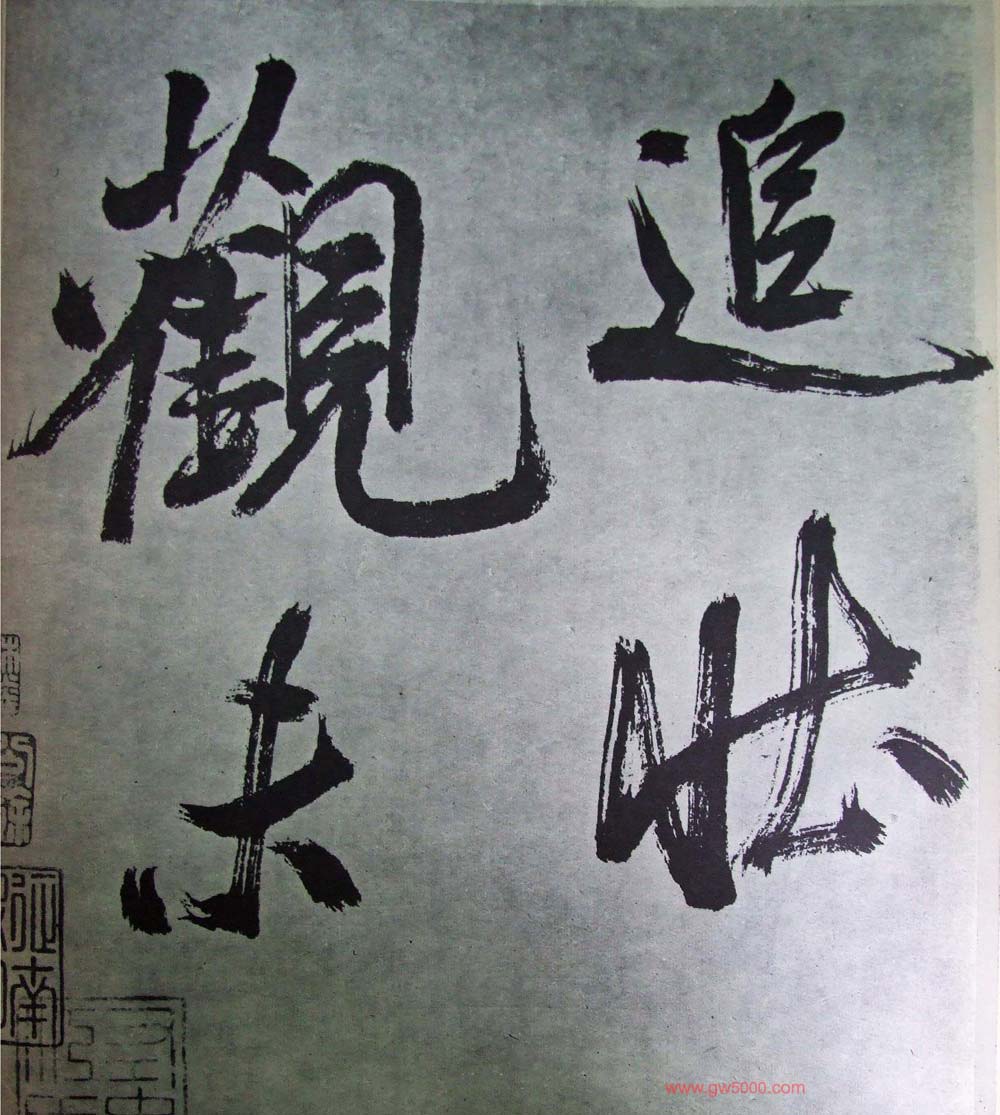 追壯
觀未
www.gw5000.com